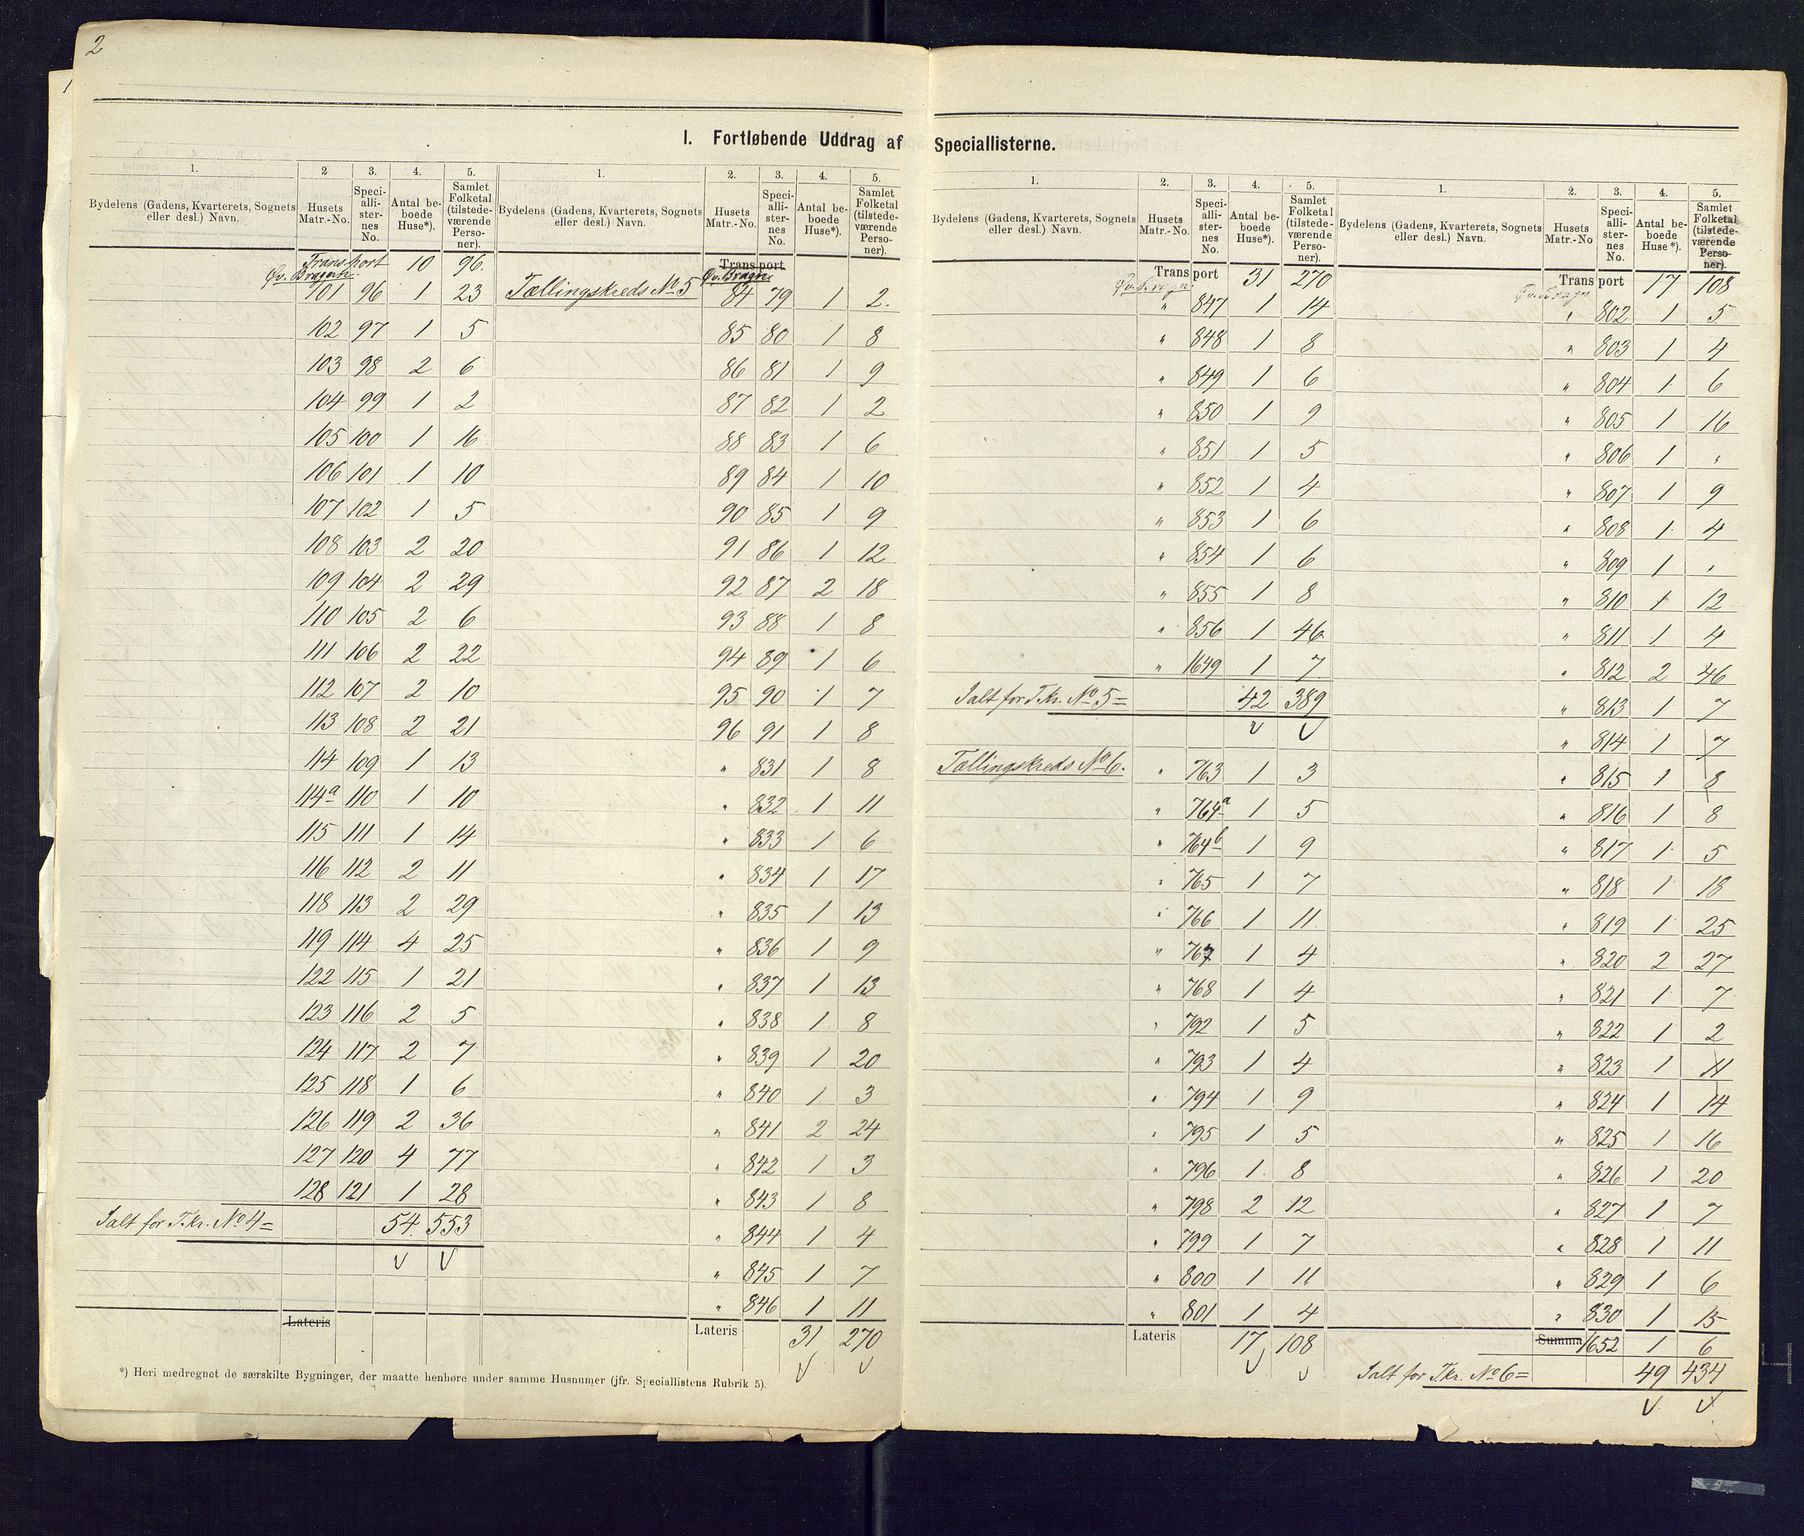 2
I. Fortløbende Uddrag af Speciallisterne.
1. 2 3. 4. 5.
Bydelens (Gadens, Kvarterets, Sognets eller desl.) Navn. Husets Matr.-No. Speciallisternes No. Antal beboede Huse*). Samlet Folketal (tilstedeværende Personer).
Transport 10 96.
Øv. Bragn.
101 96 1 23
102 97 1 5
103 98 2 6
104 99 1 2
105 100 1 16
106 101 1 10
107 102 1 5
108 103 2 20
109 104 2 29
110 105 2 6
111 106 2 22
112 107 2 10
113 108 2 21
114 109 1 13
114a 110 1 10
115 111 1 14
116 112 2 11
118 113 2 29
119 114 4 25
122 115 1 21
123 116 2 5
124 117 2 7
125 118 1 6
126 119 2 36
127 120 4 77
128 121 1 28
Ialt for T.kr. No 4 = 54. 553
Lateris
1. 2. 3. 4. 5.
Bydelens (Gadens, Kvarterets, Sognets eller desl.) Navn. Husets Matr.-No. Speciallisternes No. Antal beboede Huse*). Samlet Folketal (tilstedeværende Personer).
Transport
Øv. Bragn.
Tællingskreds No 5 84 79 1 2.
85 80 1 8
86 81 1 9
87 82 1 2
88 83 1 6
89 84 1 10
90 85 1 9
91 86 1 12
92 87 2 18
93 88 1 8
94 89 1 6
95 90 1 7
96 91 1 8
" 831 1 8
" 832 1 11
" 833 1 6
" 834 1 17
" 835 1 13
" 836 1 9
" 837 1 13
" 838 1 8
" 839 1 20
" 840 1 3
" 841 2 24
" 842 1 3
" 843 1 8
" 844 1 4
" 845 1 7
" 846 1 11
Lateris 31 270
*) Heri medregnet de særskilte Bygninger, der maatte henhøre under samme Husnumer (jfr. Speciallistens Rubrik 5).
1. 2. 3. 4. 5.
Bydelens (Gadens, Kvarterets, Sognets eller desl.) Navn. Husets Matr.-No. Speciallisternes No. Antal beboede Huse*). Samlet Folketal (tilstedeværende Personer).
Transport 31 270
Øv. Bragn.
" 847 1 14
" 848 1 8
" 849 1 6
" 850 1 9
" 851 1 5
" 852 1 4
" 853 1 6
" 854 1 6
" 855 1 8
" 856 1 46
" 1649 1 7
Ialt for T.kr. No 5 = 42 389
Tællingskreds No 6. " 763 1 3
" 764a 1 5
" 764b 1 9
" 765 1 7
" 766 1 11
" 767 1 4
" 768 1 4
" 792 1 5
" 793 1 4
" 794 1 9
" 795 1 5
" 796 1 8
" 798 2 12
" 799 1 7
" 800 1 11
" 801 1 4
Lateris 17 108
1. 2. 3. 4. 5.
Bydelens (Gadens, Kvarterets, Sognets eller desl.) Navn. Husets Matr.-No. Speciallisternes No. Antal beboede Huse*). Samlet Folketal (tilstedeværende Personer).
Transport 17 108
Øv. Bragn
" 802 1 5
" 803 1 4
" 804 1 6
" 805 1 16
" 806 1 "
" 807 1 9
" 808 1 4
" 809 1 "
" 810 1 12
" 811 1 4
" 812 2 46
" 813 1 7
" 814 1 7
" 815 1 8
" 816 1 8
" 817 1 5
" 818 1 18
" 819 1 25
" 820 2 27
" 821 1 7
" 822 1 2
" 823 1 11
" 824 1 14
" 825 1 16
" 826 1 20
" 827 1 7
" 828 1 11
" 829 1 6
" 830 1 15
Summa 1652 1 6
Ialt for Tkr. No 6 = 49 434